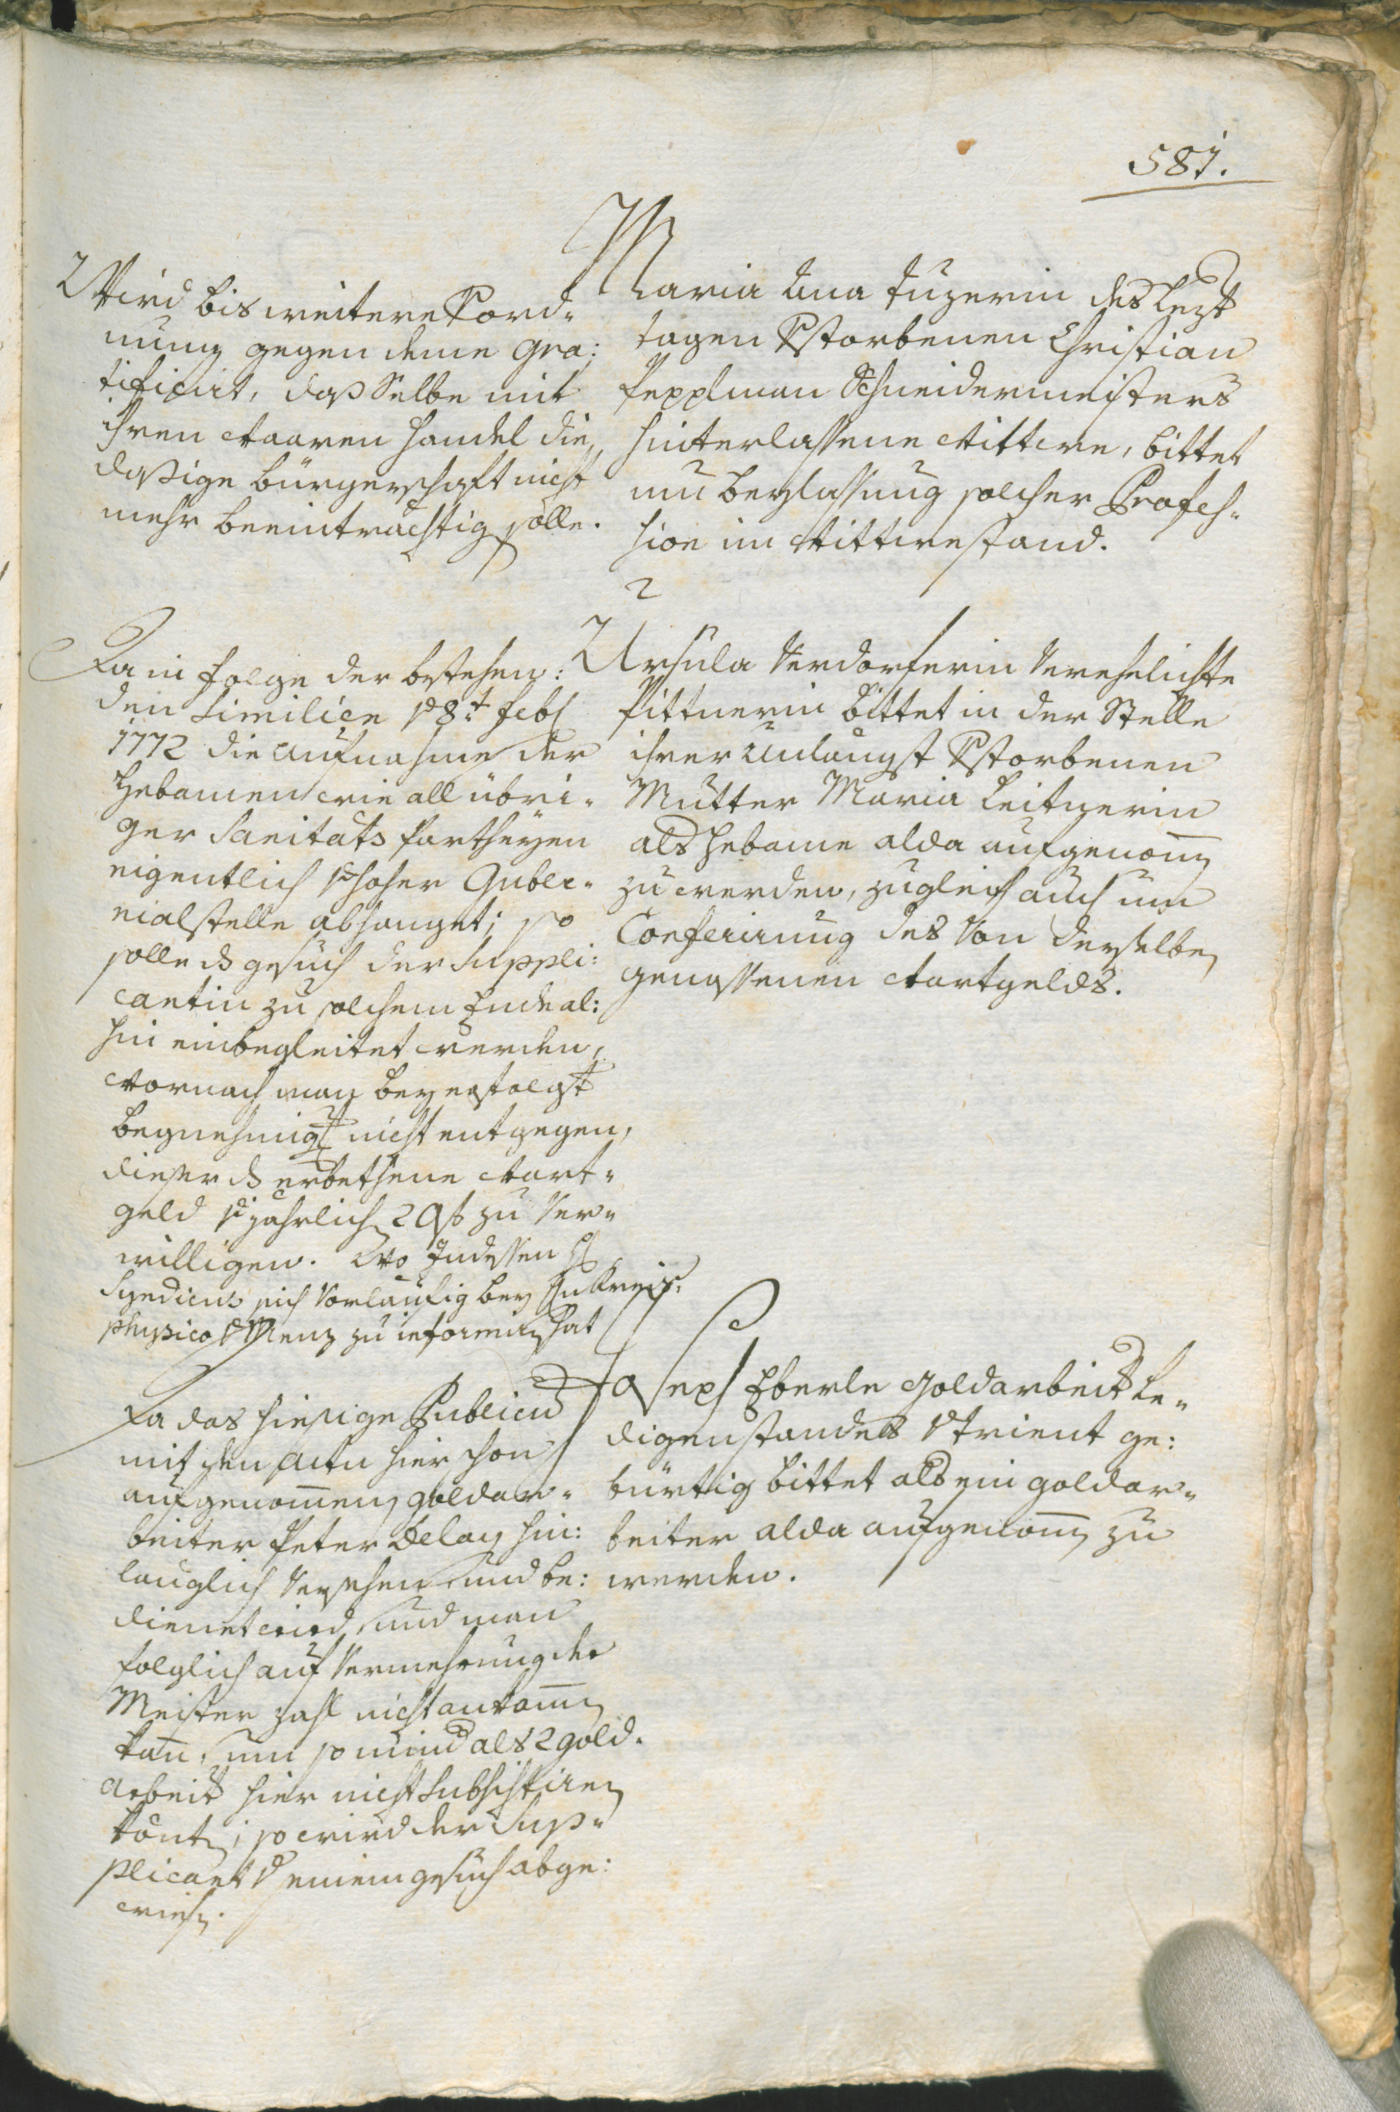 581.
Maria Anna Tuzerin des lezt
tagen verstorbenen Christian
Pepplman Schneidermeisters
hinterlassene Wittwe, bittet
um beylassung solcher Profes-
sion im Wittwestand.
Wird bis weitere Verord-
nung gegen deme gra:
tificirt, daß Selbe mit
ihren Waaren handel die
dasige bürgerschaft nicht
mehr beeinträchtig solle.
Ursula Verdorferin Verehelichte
Pittnerin bittet in der Stelle
ihrer unlängst verstorbenen
Mutter Maria Leitgerin
als Hebame alda aufgenom̄
zu werden, zugleich auch um
Conferirung des von derselben
genossenen Wartgelds.
Da in folge der bestehen:
den Similien 8t. feb
1772 die aufnahme der
Hebamen wie all übri-
ger Sanitäts Partheyen
eigentlich hoher Guber-
nialstelle abhanget; so
solle gesuch der Suppli:
cantin zu solchem Ende al:
hin einbegleitet werden,
wornach man bey erfolgt
begnehmigt nicht entgegen,
dieser erbethene Wart-
geld jährlich zu Ver-
willigen. Wo Indessen H
Syndicus sich Vorläufig bey Kreis:
physico Menz zu informirn hat
Joseph Eberle goldarbeiter le-
digenstandes Trient ge:
bürtig bittet als ein goldar-
beiter alda aufgenom̄ zu
werden.
Da das hiesige Publicum
mit den hier schon
aufgenom̄en goldar-
beiter Peter Delay hin:
länglich Versehen und be:
dienet wird, und man
folglich auf Vermehrung der
Meister zahl nicht antom̄
kan̄, um so minder als 2 gold-
arbeiter hier nicht Subsistiren
könten; so wird der Sup-
plicant seinem gesuch abge:
wiesen.